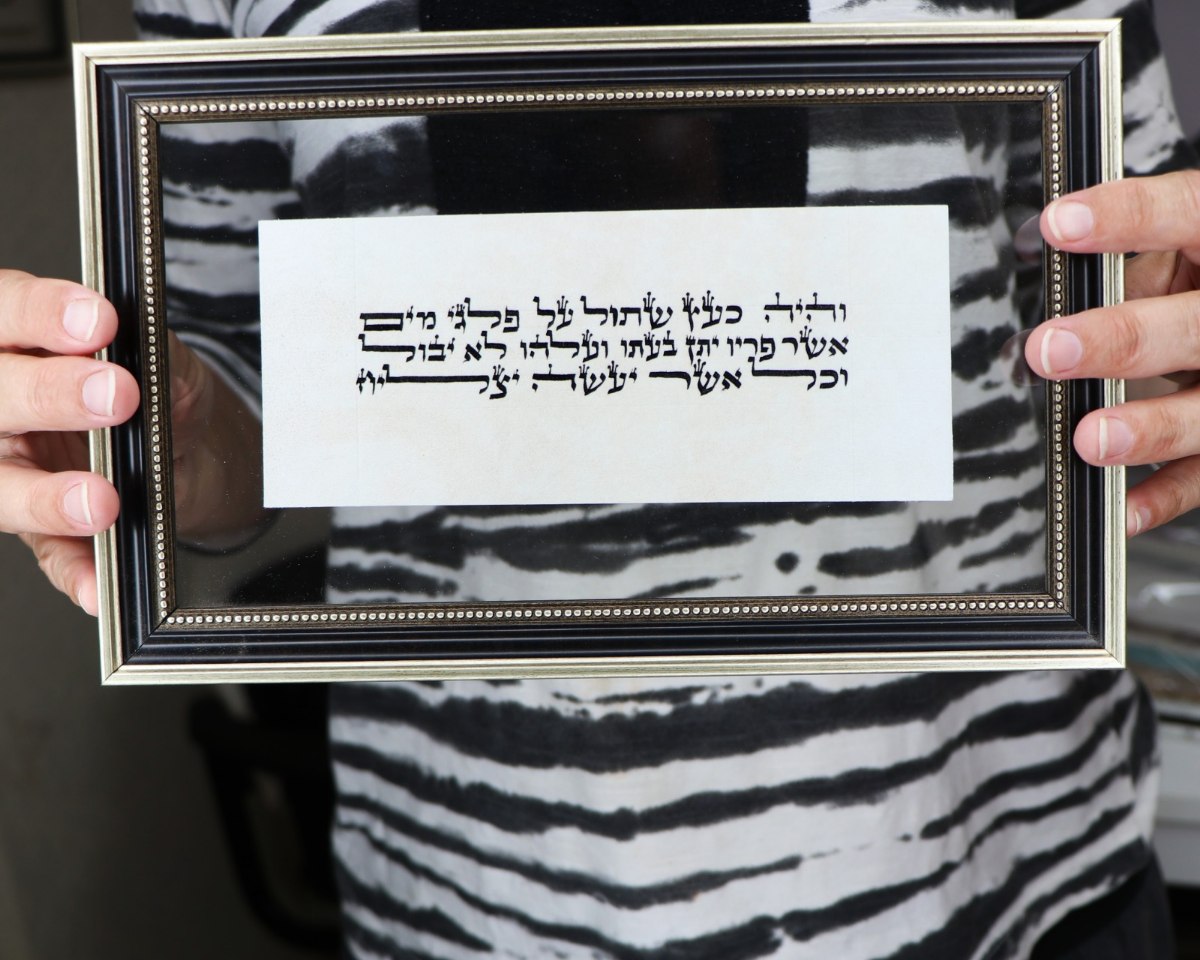 והיה כעץ שתול על פלגי מים
אשר פריו יתן בעתו ועלהו לא יבול
וכל אשר יעשה יצליח